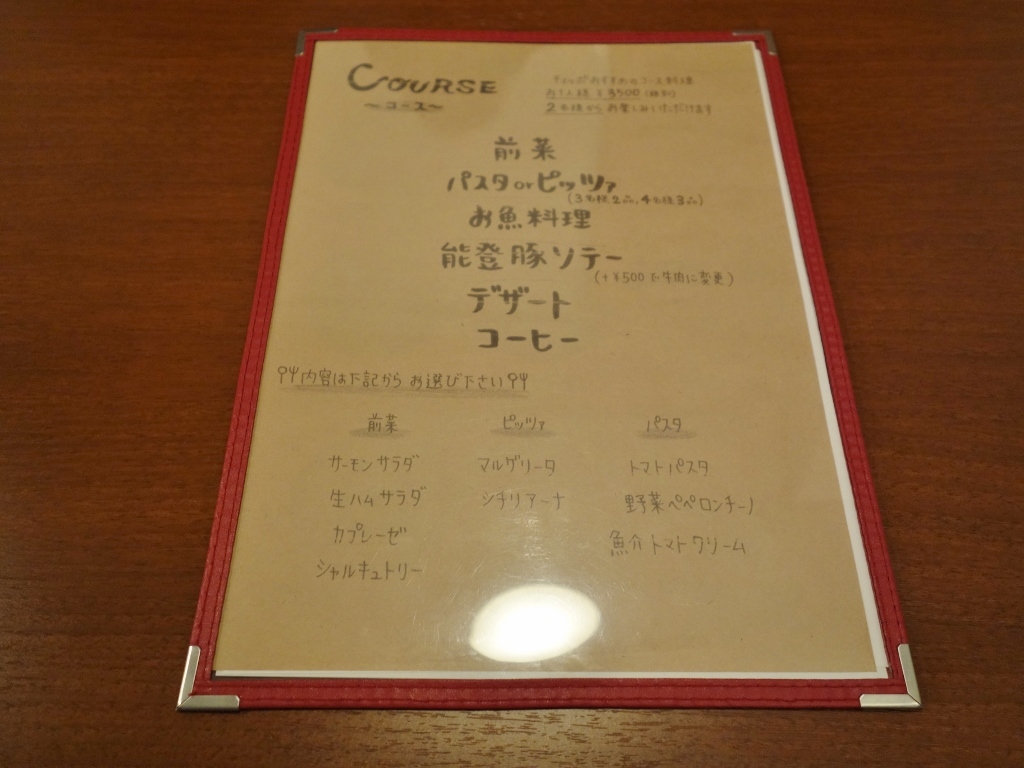 COURSE
～コース～
おすすめのコース料理
お1人様 ¥3500(税別)
2名様から お楽しみいただけます
前菜
パスタorピッツァ
(3名様2品,4名様3品)
お魚料理
能登豚ソテー
(+¥500で牛肉に変更)
デザート
コーヒー
内容は下記から お選び下さい
前菜 ピッツァ パスタ
サーモンサラダ マルゲリータ トマトパスタ
生ハムサラダ シチリアーナ 野菜ペペロンチーノ
カプレーゼ 魚介トマトクリーム
シャルキュトリー